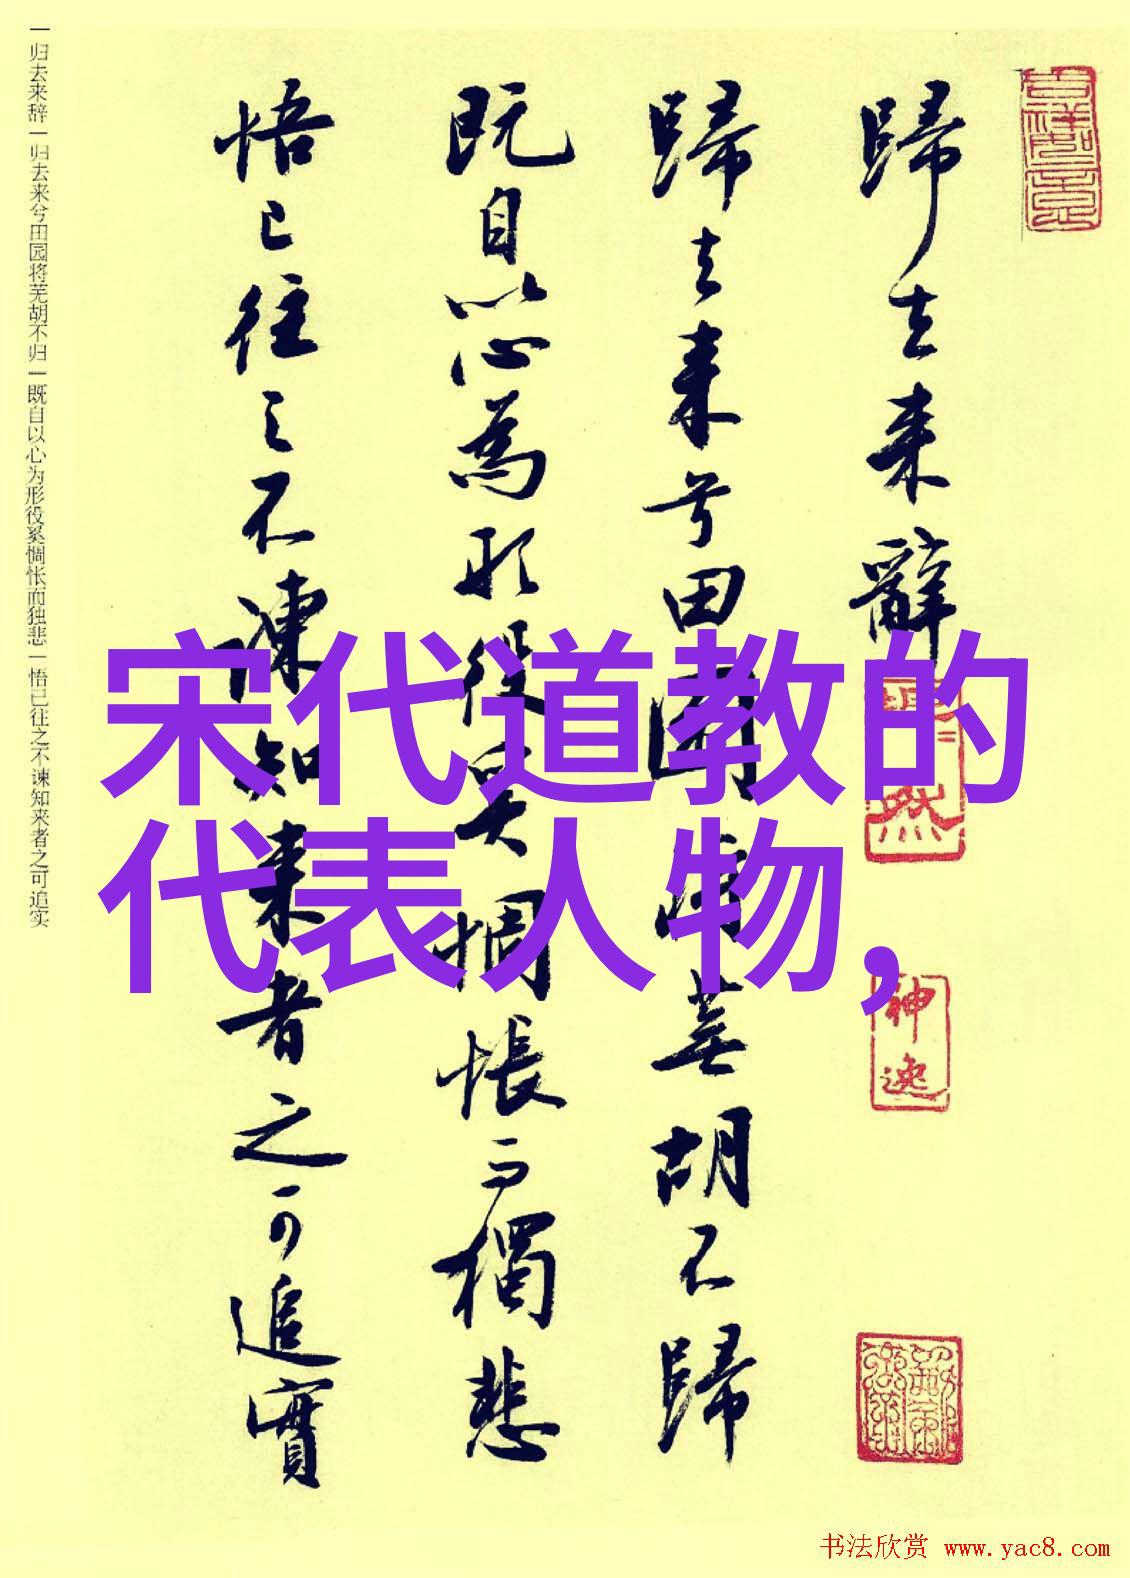 宋代道教的
代表人物,
歸去来辭
歸去来兮田園将蕪胡不歸
既自以心為形役奚惆悵而獨悲
悟已往之不諫知来者之可追實
一归去来辞一归去来兮田园将芜胡不归一既自以心为形役奚惆怅而独悲一悟已往之不谏知来者之可追实
然
神逸
书法欣赏 www.yac8.com